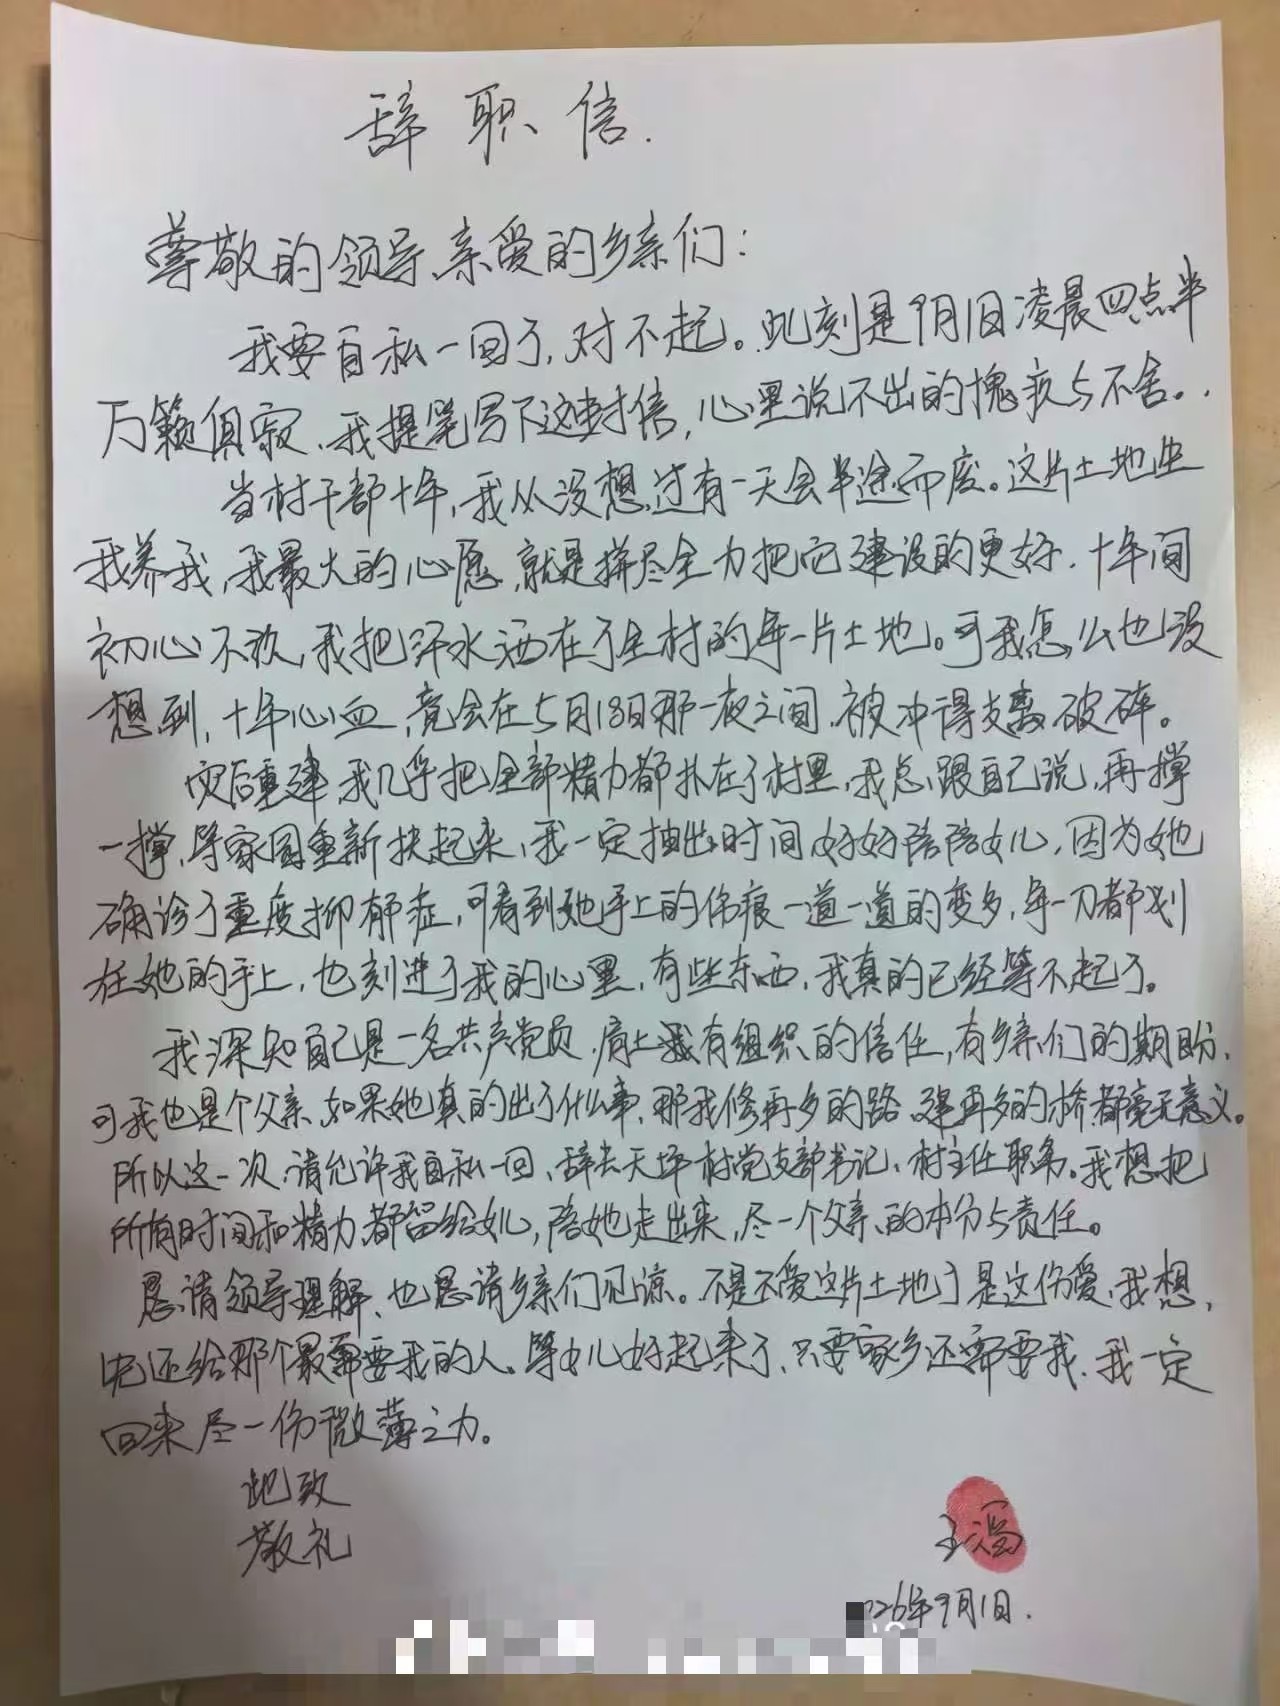 辞职信.
尊敬的领导、亲爱的乡亲们：
我要自私一回了,对不起。此刻是9月1日凌晨四点半
万籁俱寂、我提笔写下这封信,心里说不出的愧疚与不舍。.
当村干部十年,我从没想过有一天会半途而废。这片土地生
我养我,我最大的心愿,就是拼尽全力把它建设的更好.十年间
初心不改,我把汗水洒在了全村的每一片土地。可我怎么也没
想到,十年心血,竟会在5月18日那一夜之间、被冲得支离破碎。
灾后重建,我几乎把全部精力都扑在了村里,我总跟自己说,再撑
一撑,等家园重新扶起来,我一定抽出时间好好陪陪女儿,因为她
确诊了重度抑郁症,可看到她手上的伤痕一道一道的变多,每一刀都划
在她的手上,也刻进了我的心里,有些东西,我真的已经等不起了。
我深知自己是一名共产党员,肩上有组织的信任,有乡亲们的期盼,
可我也是个父亲、如果她真的出了什么事、那我修再多的路、建再多的桥,都毫无意义。
所以这一次,请允许我自私一回、辞去天坪村党支部书记、村主任职务。我想把
所有时间和精力,都留给女儿,陪她走出来,尽一个父亲的本分与责任。
恳请领导理解、也恳请乡亲们见谅。不是不爱这片土地了是这份爱,我想,
先还给那个最需要我的人。等女儿好起来了、只要家乡还需要我、我一定
回来尽一份微薄之力。
此致
敬礼
王冯
26年9月1日.